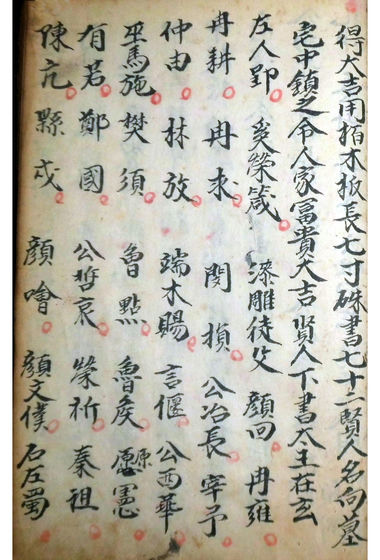 得大吉用栢木板長七寸硃書七十二賢人名向墓
宅中鎮之令人家冨貴大吉賢人下書太上在玄
左人郢 奚榮箴 漆雕徒父 顔回 冉雍
冉耕 冉求 閔損 公冶長 宰予
仲由 林放 端木賜 言偃 公西華
巫馬施 樊須 曾點 曾良 原憲
有若 鄭國 公晳哀 榮祈 秦祖
陳亢 縣成 顔噲 顔文僕 石左蜀